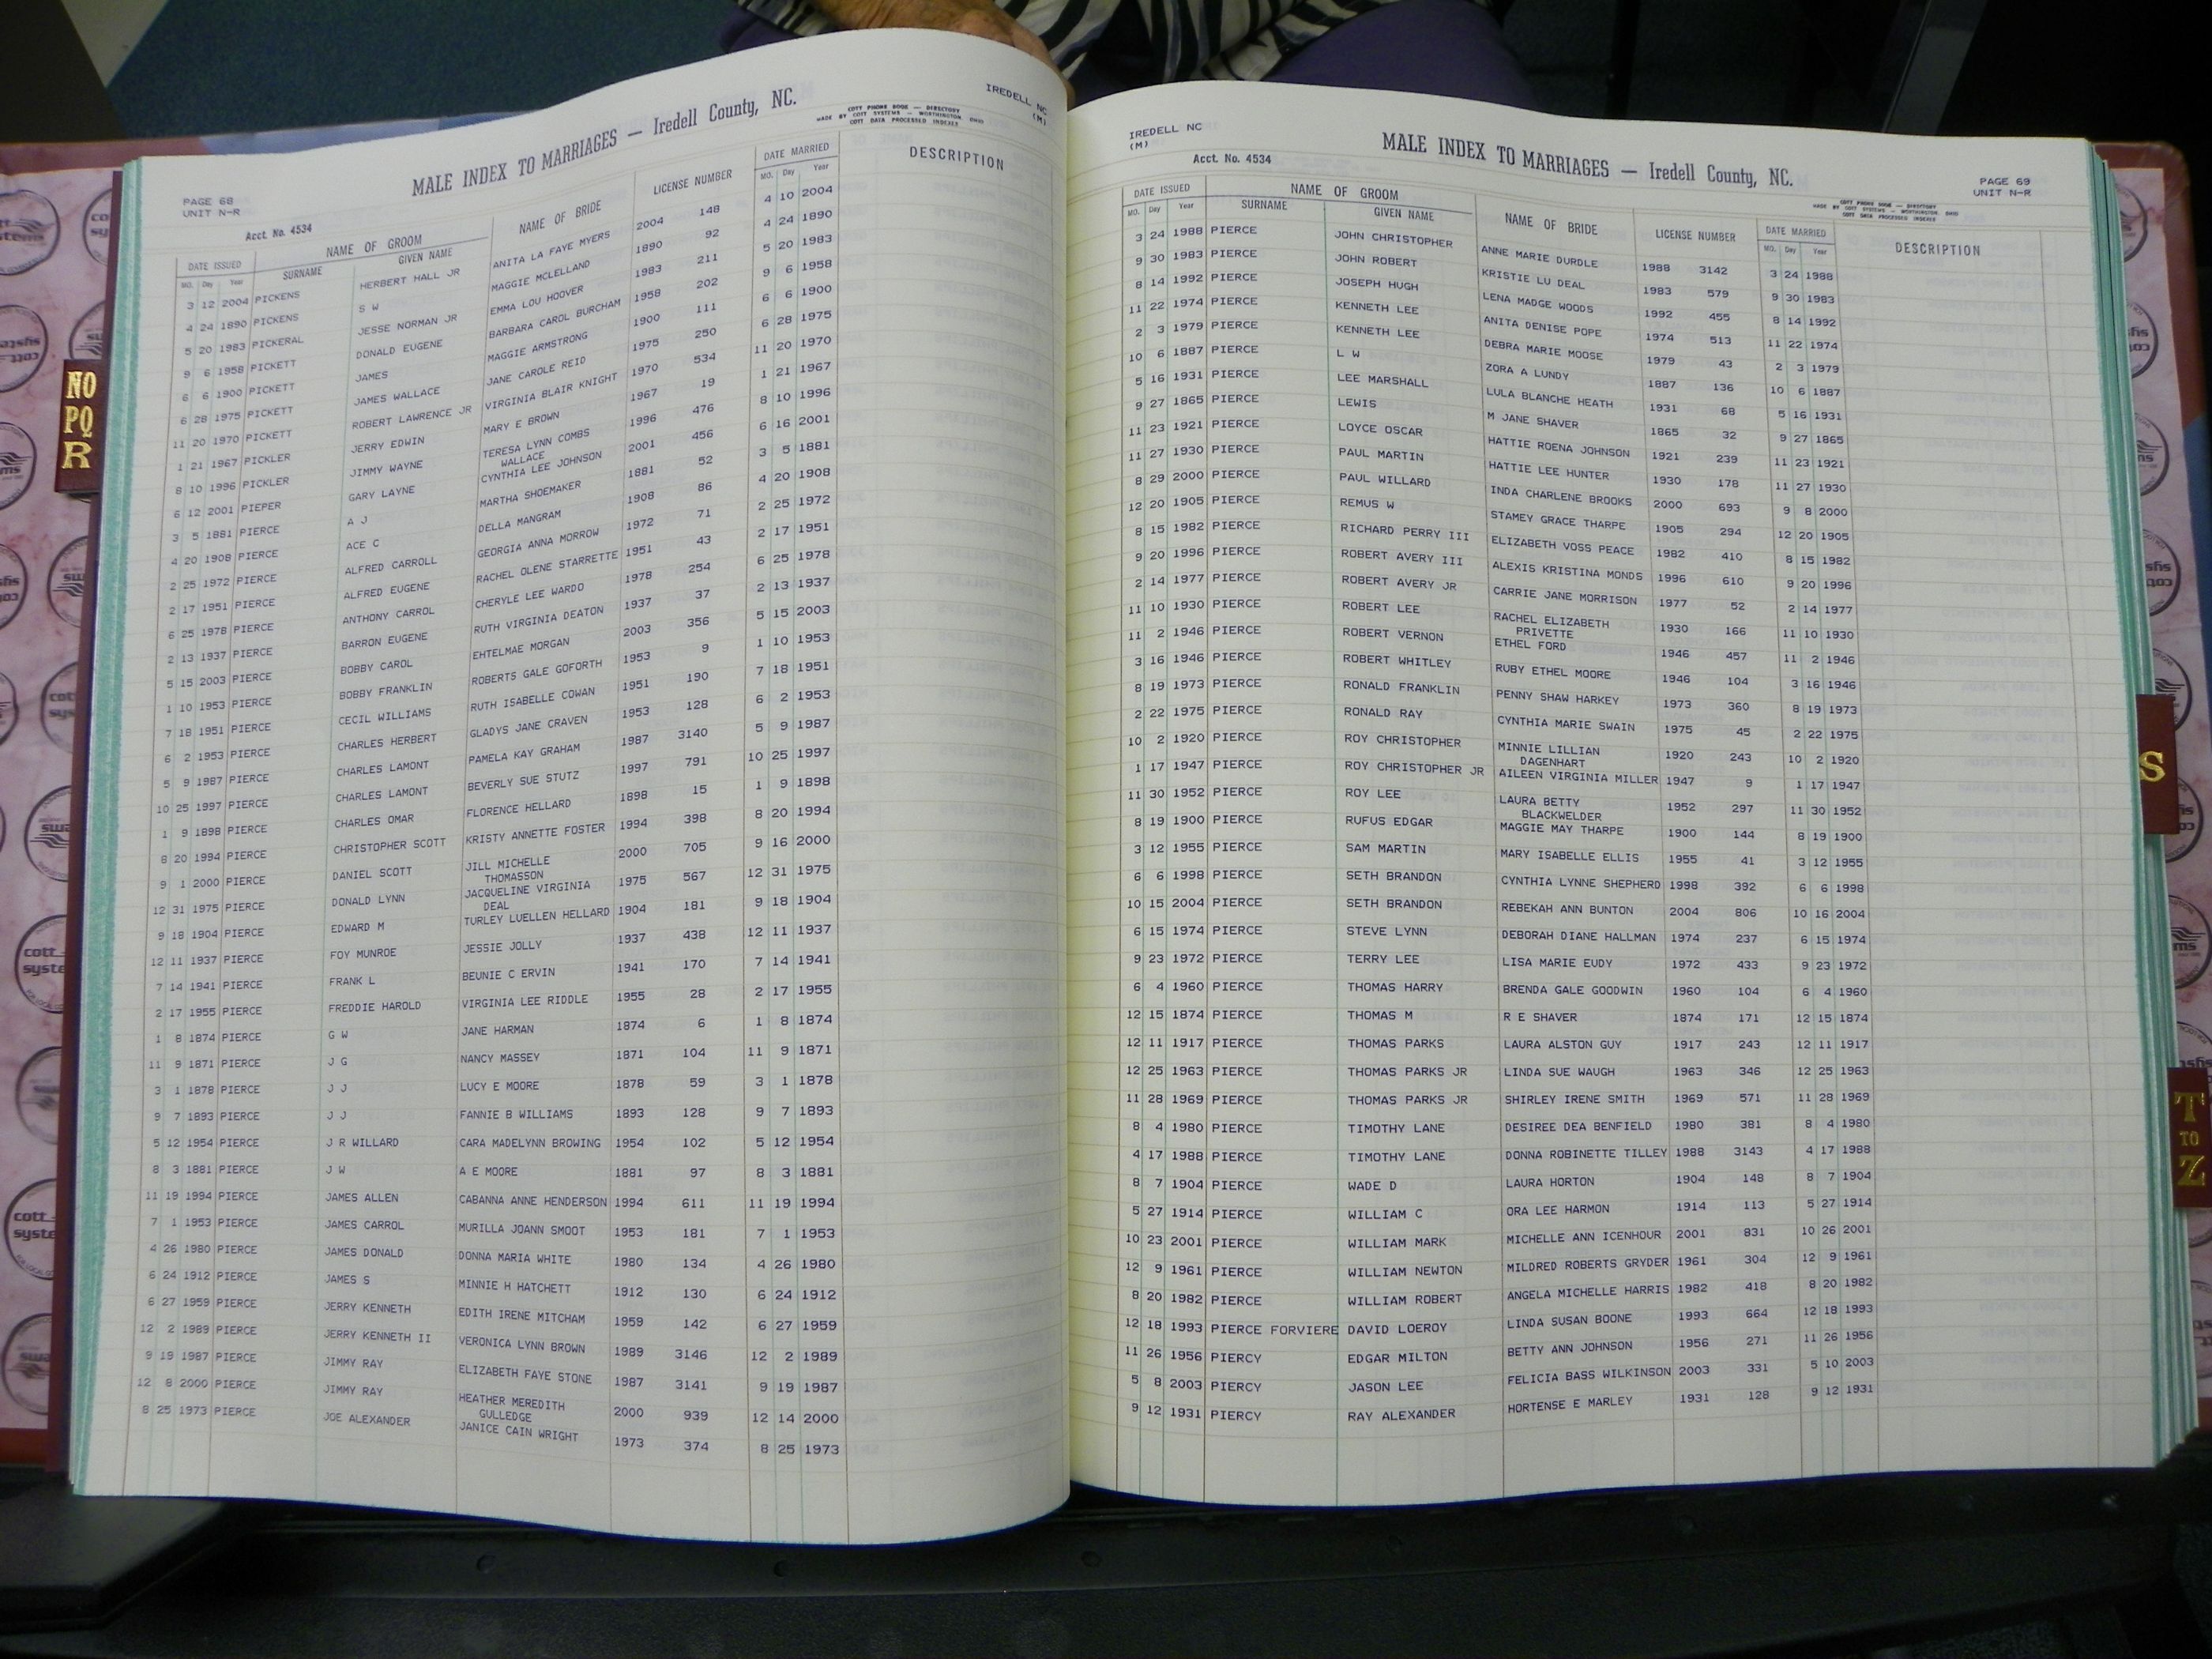 IREDELL NC
(M)
COTT PHONE BOOK — DIRECTORY
MADE BY COTT SYSTEMS — WORTHINGTON, OHIO
COTT DATA PROCESSED INDEXES
MALE INDEX TO MARRIAGES — Iredell County, NC.
PAGE 68
UNIT N-R
Acct. No. 4534
DATE ISSUED NAME OF GROOM NAME OF BRIDE LICENSE NUMBER DATE MARRIED DESCRIPTION
MO. Day Year SURNAME GIVEN NAME MO. Day Year
3 12 2004 PICKENS HERBERT HALL JR ANITA LA FAYE MYERS 2004 148 4 10 2004
4 24 1890 PICKENS S W MAGGIE MCLELLAND 1890 92 4 24 1890
5 20 1983 PICKERAL JESSE NORMAN JR EMMA LOU HOOVER 1983 211 5 20 1983
9 6 1958 PICKETT DONALD EUGENE BARBARA CAROL BURCHAM 1958 202 9 6 1958
6 6 1900 PICKETT JAMES MAGGIE ARMSTRONG 1900 111 6 6 1900
6 28 1975 PICKETT JAMES WALLACE JANE CAROLE REID 1975 250 6 28 1975
11 20 1970 PICKETT ROBERT LAWRENCE JR VIRGINIA BLAIR KNIGHT 1970 534 11 20 1970
1 21 1967 PICKLER JERRY EDWIN MARY E BROWN 1967 19 1 21 1967
8 10 1996 PICKLER JIMMY WAYNE TERESA LYNN COMBS 1996 476 8 10 1996
WALLACE
6 12 2001 PIEPER GARY LAYNE CYNTHIA LEE JOHNSON 2001 456 6 16 2001
3 5 1881 PIERCE A J MARTHA SHOEMAKER 1881 52 3 5 1881
4 20 1908 PIERCE ACE C DELLA MANGRAM 1908 86 4 20 1908
2 25 1972 PIERCE ALFRED CARROLL GEORGIA ANNA MORROW 1972 71 2 25 1972
2 17 1951 PIERCE ALFRED EUGENE RACHEL OLENE STARRETTE 1951 43 2 17 1951
6 25 1978 PIERCE ANTHONY CARROL CHERYLE LEE WARDO 1978 254 6 25 1978
2 13 1937 PIERCE BARRON EUGENE RUTH VIRGINIA DEATON 1937 37 2 13 1937
5 15 2003 PIERCE BOBBY CAROL EHTELMAE MORGAN 2003 356 5 15 2003
1 10 1953 PIERCE BOBBY FRANKLIN ROBERTS GALE GOFORTH 1953 9 1 10 1953
7 18 1951 PIERCE CECIL WILLIAMS RUTH ISABELLE COWAN 1951 190 7 18 1951
6 2 1953 PIERCE CHARLES HERBERT GLADYS JANE CRAVEN 1953 128 6 2 1953
5 9 1987 PIERCE CHARLES LAMONT PAMELA KAY GRAHAM 1987 3140 5 9 1987
10 25 1997 PIERCE CHARLES LAMONT BEVERLY SUE STUTZ 1997 791 10 25 1997
1 9 1898 PIERCE CHARLES OMAR FLORENCE HELLARD 1898 15 1 9 1898
8 20 1994 PIERCE CHRISTOPHER SCOTT KRISTY ANNETTE FOSTER 1994 398 8 20 1994
9 1 2000 PIERCE DANIEL SCOTT JILL MICHELLE 2000 705 9 16 2000
THOMASSON
12 31 1975 PIERCE DONALD LYNN JACQUELINE VIRGINIA 1975 567 12 31 1975
DEAL
9 18 1904 PIERCE EDWARD M TURLEY LUELLEN HELLARD 1904 181 9 18 1904
12 11 1937 PIERCE FOY MUNROE JESSIE JOLLY 1937 438 12 11 1937
7 14 1941 PIERCE FRANK L BEUNIE C ERVIN 1941 170 7 14 1941
2 17 1955 PIERCE FREDDIE HAROLD VIRGINIA LEE RIDDLE 1955 28 2 17 1955
1 8 1874 PIERCE G W JANE HARMAN 1874 6 1 8 1874
11 9 1871 PIERCE J G NANCY MASSEY 1871 104 11 9 1871
3 1 1878 PIERCE J J LUCY E MOORE 1878 59 3 1 1878
9 7 1893 PIERCE J J FANNIE B WILLIAMS 1893 128 9 7 1893
5 12 1954 PIERCE J R WILLARD CARA MADELYNN BROWING 1954 102 5 12 1954
8 3 1881 PIERCE J W A E MOORE 1881 97 8 3 1881
11 19 1994 PIERCE JAMES ALLEN CABANNA ANNE HENDERSON 1994 611 11 19 1994
7 1 1953 PIERCE JAMES CARROL MURILLA JOANN SMOOT 1953 181 7 1 1953
4 26 1980 PIERCE JAMES DONALD DONNA MARIA WHITE 1980 134 4 26 1980
6 24 1912 PIERCE JAMES S MINNIE H HATCHETT 1912 130 6 24 1912
6 27 1959 PIERCE JERRY KENNETH EDITH IRENE MITCHAM 1959 142 6 27 1959
12 2 1989 PIERCE JERRY KENNETH II VERONICA LYNN BROWN 1989 3146 12 2 1989
9 19 1987 PIERCE JIMMY RAY ELIZABETH FAYE STONE 1987 3141 9 19 1987
12 8 2000 PIERCE JIMMY RAY HEATHER MEREDITH 2000 939 12 14 2000
GULLEDGE
8 25 1973 PIERCE JOE ALEXANDER JANICE CAIN WRIGHT 1973 374 8 25 1973
IREDELL NC
(M)
Acct. No. 4534
MALE INDEX TO MARRIAGES — Iredell County, NC.
PAGE 69
UNIT N-R
COTT PHONE BOOK — DIRECTORY
MADE BY COTT SYSTEMS — WORTHINGTON, OHIO
COTT DATA PROCESSED INDEXES
DATE ISSUED NAME OF GROOM NAME OF BRIDE LICENSE NUMBER DATE MARRIED DESCRIPTION
MO. Day Year SURNAME GIVEN NAME MO. Day Year
3 24 1988 PIERCE JOHN CHRISTOPHER ANNE MARIE DURDLE 1988 3142 3 24 1988
9 30 1983 PIERCE JOHN ROBERT KRISTIE LU DEAL 1983 579 9 30 1983
8 14 1992 PIERCE JOSEPH HUGH LENA MADGE WOODS 1992 455 8 14 1992
11 22 1974 PIERCE KENNETH LEE ANITA DENISE POPE 1974 513 11 22 1974
2 3 1979 PIERCE KENNETH LEE DEBRA MARIE MOOSE 1979 43 2 3 1979
10 6 1887 PIERCE L W ZORA A LUNDY 1887 136 10 6 1887
5 16 1931 PIERCE LEE MARSHALL LULA BLANCHE HEATH 1931 68 5 16 1931
9 27 1865 PIERCE LEWIS M JANE SHAVER 1865 32 9 27 1865
11 23 1921 PIERCE LOYCE OSCAR HATTIE ROENA JOHNSON 1921 239 11 23 1921
11 27 1930 PIERCE PAUL MARTIN HATTIE LEE HUNTER 1930 178 11 27 1930
8 29 2000 PIERCE PAUL WILLARD INDA CHARLENE BROOKS 2000 693 9 8 2000
12 20 1905 PIERCE REMUS W STAMEY GRACE THARPE 1905 294 12 20 1905
8 15 1982 PIERCE RICHARD PERRY III ELIZABETH VOSS PEACE 1982 410 8 15 1982
9 20 1996 PIERCE ROBERT AVERY III ALEXIS KRISTINA MONDS 1996 610 9 20 1996
2 14 1977 PIERCE ROBERT AVERY JR CARRIE JANE MORRISON 1977 52 2 14 1977
11 10 1930 PIERCE ROBERT LEE RACHEL ELIZABETH 1930 166 11 10 1930
PRIVETTE
11 2 1946 PIERCE ROBERT VERNON ETHEL FORD 1946 457 11 2 1946
3 16 1946 PIERCE ROBERT WHITLEY RUBY ETHEL MOORE 1946 104 3 16 1946
8 19 1973 PIERCE RONALD FRANKLIN PENNY SHAW HARKEY 1973 360 8 19 1973
2 22 1975 PIERCE RONALD RAY CYNTHIA MARIE SWAIN 1975 45 2 22 1975
10 2 1920 PIERCE ROY CHRISTOPHER MINNIE LILLIAN 1920 243 10 2 1920
DAGENHART
1 17 1947 PIERCE ROY CHRISTOPHER JR AILEEN VIRGINIA MILLER 1947 9 1 17 1947
11 30 1952 PIERCE ROY LEE LAURA BETTY 1952 297 11 30 1952
BLACKWELDER
8 19 1900 PIERCE RUFUS EDGAR MAGGIE MAY THARPE 1900 144 8 19 1900
3 12 1955 PIERCE SAM MARTIN MARY ISABELLE ELLIS 1955 41 3 12 1955
6 6 1998 PIERCE SETH BRANDON CYNTHIA LYNNE SHEPHERD 1998 392 6 6 1998
10 15 2004 PIERCE SETH BRANDON REBEKAH ANN BUNTON 2004 806 10 16 2004
6 15 1974 PIERCE STEVE LYNN DEBORAH DIANE HALLMAN 1974 237 6 15 1974
9 23 1972 PIERCE TERRY LEE LISA MARIE EUDY 1972 433 9 23 1972
6 4 1960 PIERCE THOMAS HARRY BRENDA GALE GOODWIN 1960 104 6 4 1960
12 15 1874 PIERCE THOMAS M R E SHAVER 1874 171 12 15 1874
12 11 1917 PIERCE THOMAS PARKS LAURA ALSTON GUY 1917 243 12 11 1917
12 25 1963 PIERCE THOMAS PARKS JR LINDA SUE WAUGH 1963 346 12 25 1963
11 28 1969 PIERCE THOMAS PARKS JR SHIRLEY IRENE SMITH 1969 571 11 28 1969
8 4 1980 PIERCE TIMOTHY LANE DESIREE DEA BENFIELD 1980 381 8 4 1980
4 17 1988 PIERCE TIMOTHY LANE DONNA ROBINETTE TILLEY 1988 3143 4 17 1988
8 7 1904 PIERCE WADE D LAURA HORTON 1904 148 8 7 1904
5 27 1914 PIERCE WILLIAM C ORA LEE HARMON 1914 113 5 27 1914
10 23 2001 PIERCE WILLIAM MARK MICHELLE ANN ICENHOUR 2001 831 10 26 2001
12 9 1961 PIERCE WILLIAM NEWTON MILDRED ROBERTS GRYDER 1961 304 12 9 1961
8 20 1982 PIERCE WILLIAM ROBERT ANGELA MICHELLE HARRIS 1982 418 8 20 1982
12 18 1993 PIERCE FORVIERE DAVID LOEROY LINDA SUSAN BOONE 1993 664 12 18 1993
11 26 1956 PIERCY EDGAR MILTON BETTY ANN JOHNSON 1956 271 11 26 1956
5 8 2003 PIERCY JASON LEE FELICIA BASS WILKINSON 2003 331 5 10 2003
9 12 1931 PIERCY RAY ALEXANDER HORTENSE E MARLEY 1931 128 9 12 1931
NO
PQ
R
S
T
TO
Z
cott
systems